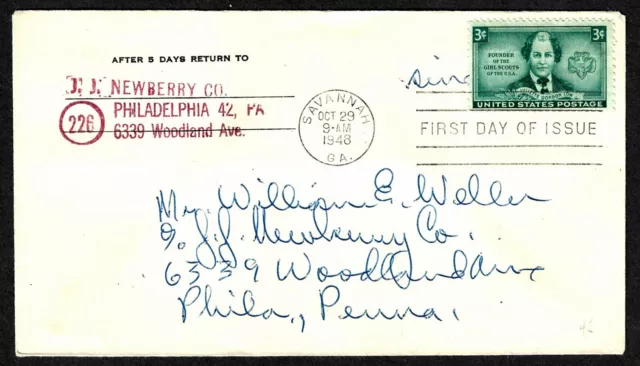 AFTER 5 DAYS RETURN TO
J. J. NEWBERRY CO.
PHILADELPHIA 42, PA
226
6339 Woodland Ave.
SAVANNAH,
OCT 29
9-AM
1948
GA.
3¢ 3¢
FOUNDER OF THE
GIRL SCOUTS
OF THE U.S.A.
JULIETTE GORDON LOW
UNITED STATES POSTAGE
FIRST DAY OF ISSUE
Mr. William E. Weller
℅ J.J. Newberry Co.
6339 Woodland Ave
Phila., Penna.